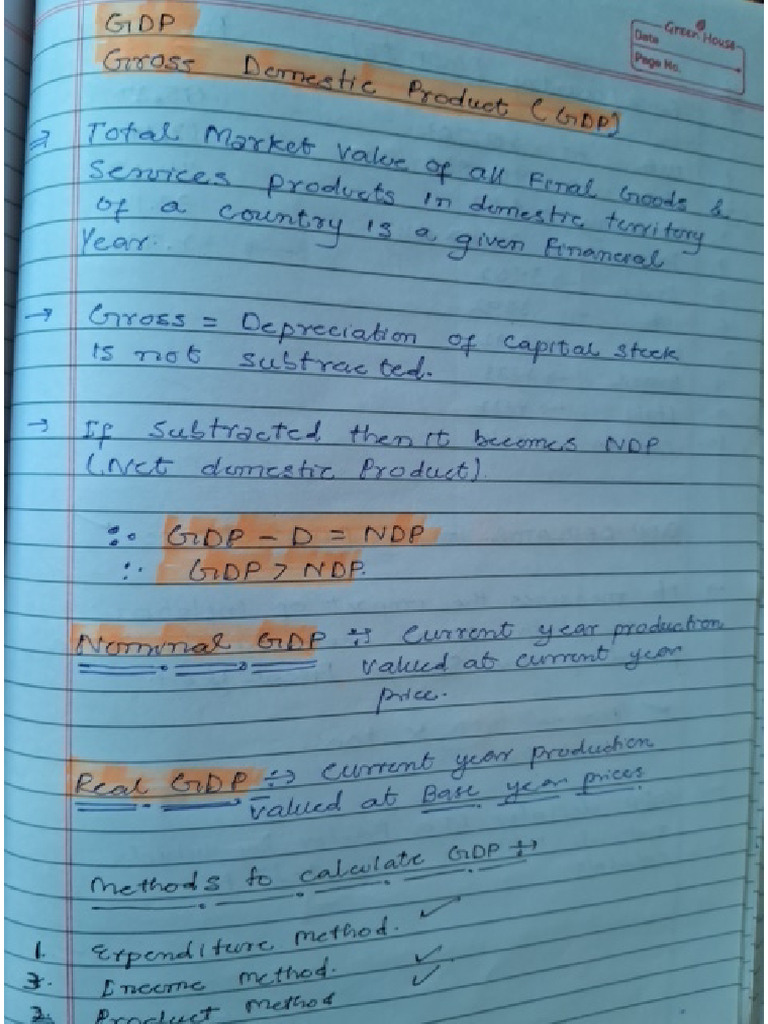 GDP
Green House
Date
Page No.
Gross Domestic Product (GDP)
⇒ Total Market value of all Final Goods &
Services products in domestic territory
of a country is a given Financial
Year.
→ Gross = Depreciation of capital stock
is not subtracted.
→ If subtracted then it becomes NDP
(Net domestic Product)
∵ GDP - D = NDP
∴ GDP > NDP.
Nominal GDP ÷→ Current year production
valued at current year
price.
Real GDP ÷→ Current year production
valued at Base year prices
Methods to calculate GDP ÷→
1. Expenditure method. ✓
2. Income method. ✓
3. Product method ✓